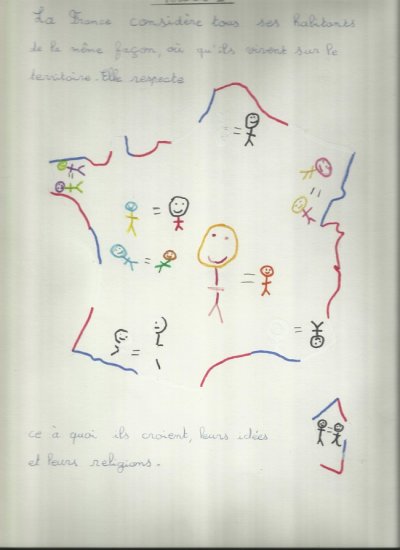 La France considère tous ses habitants
de la même façon, où qu'ils vivent sur le
territoire. Elle respecte
ce à quoi ils croient, leurs idées
et leurs religions.